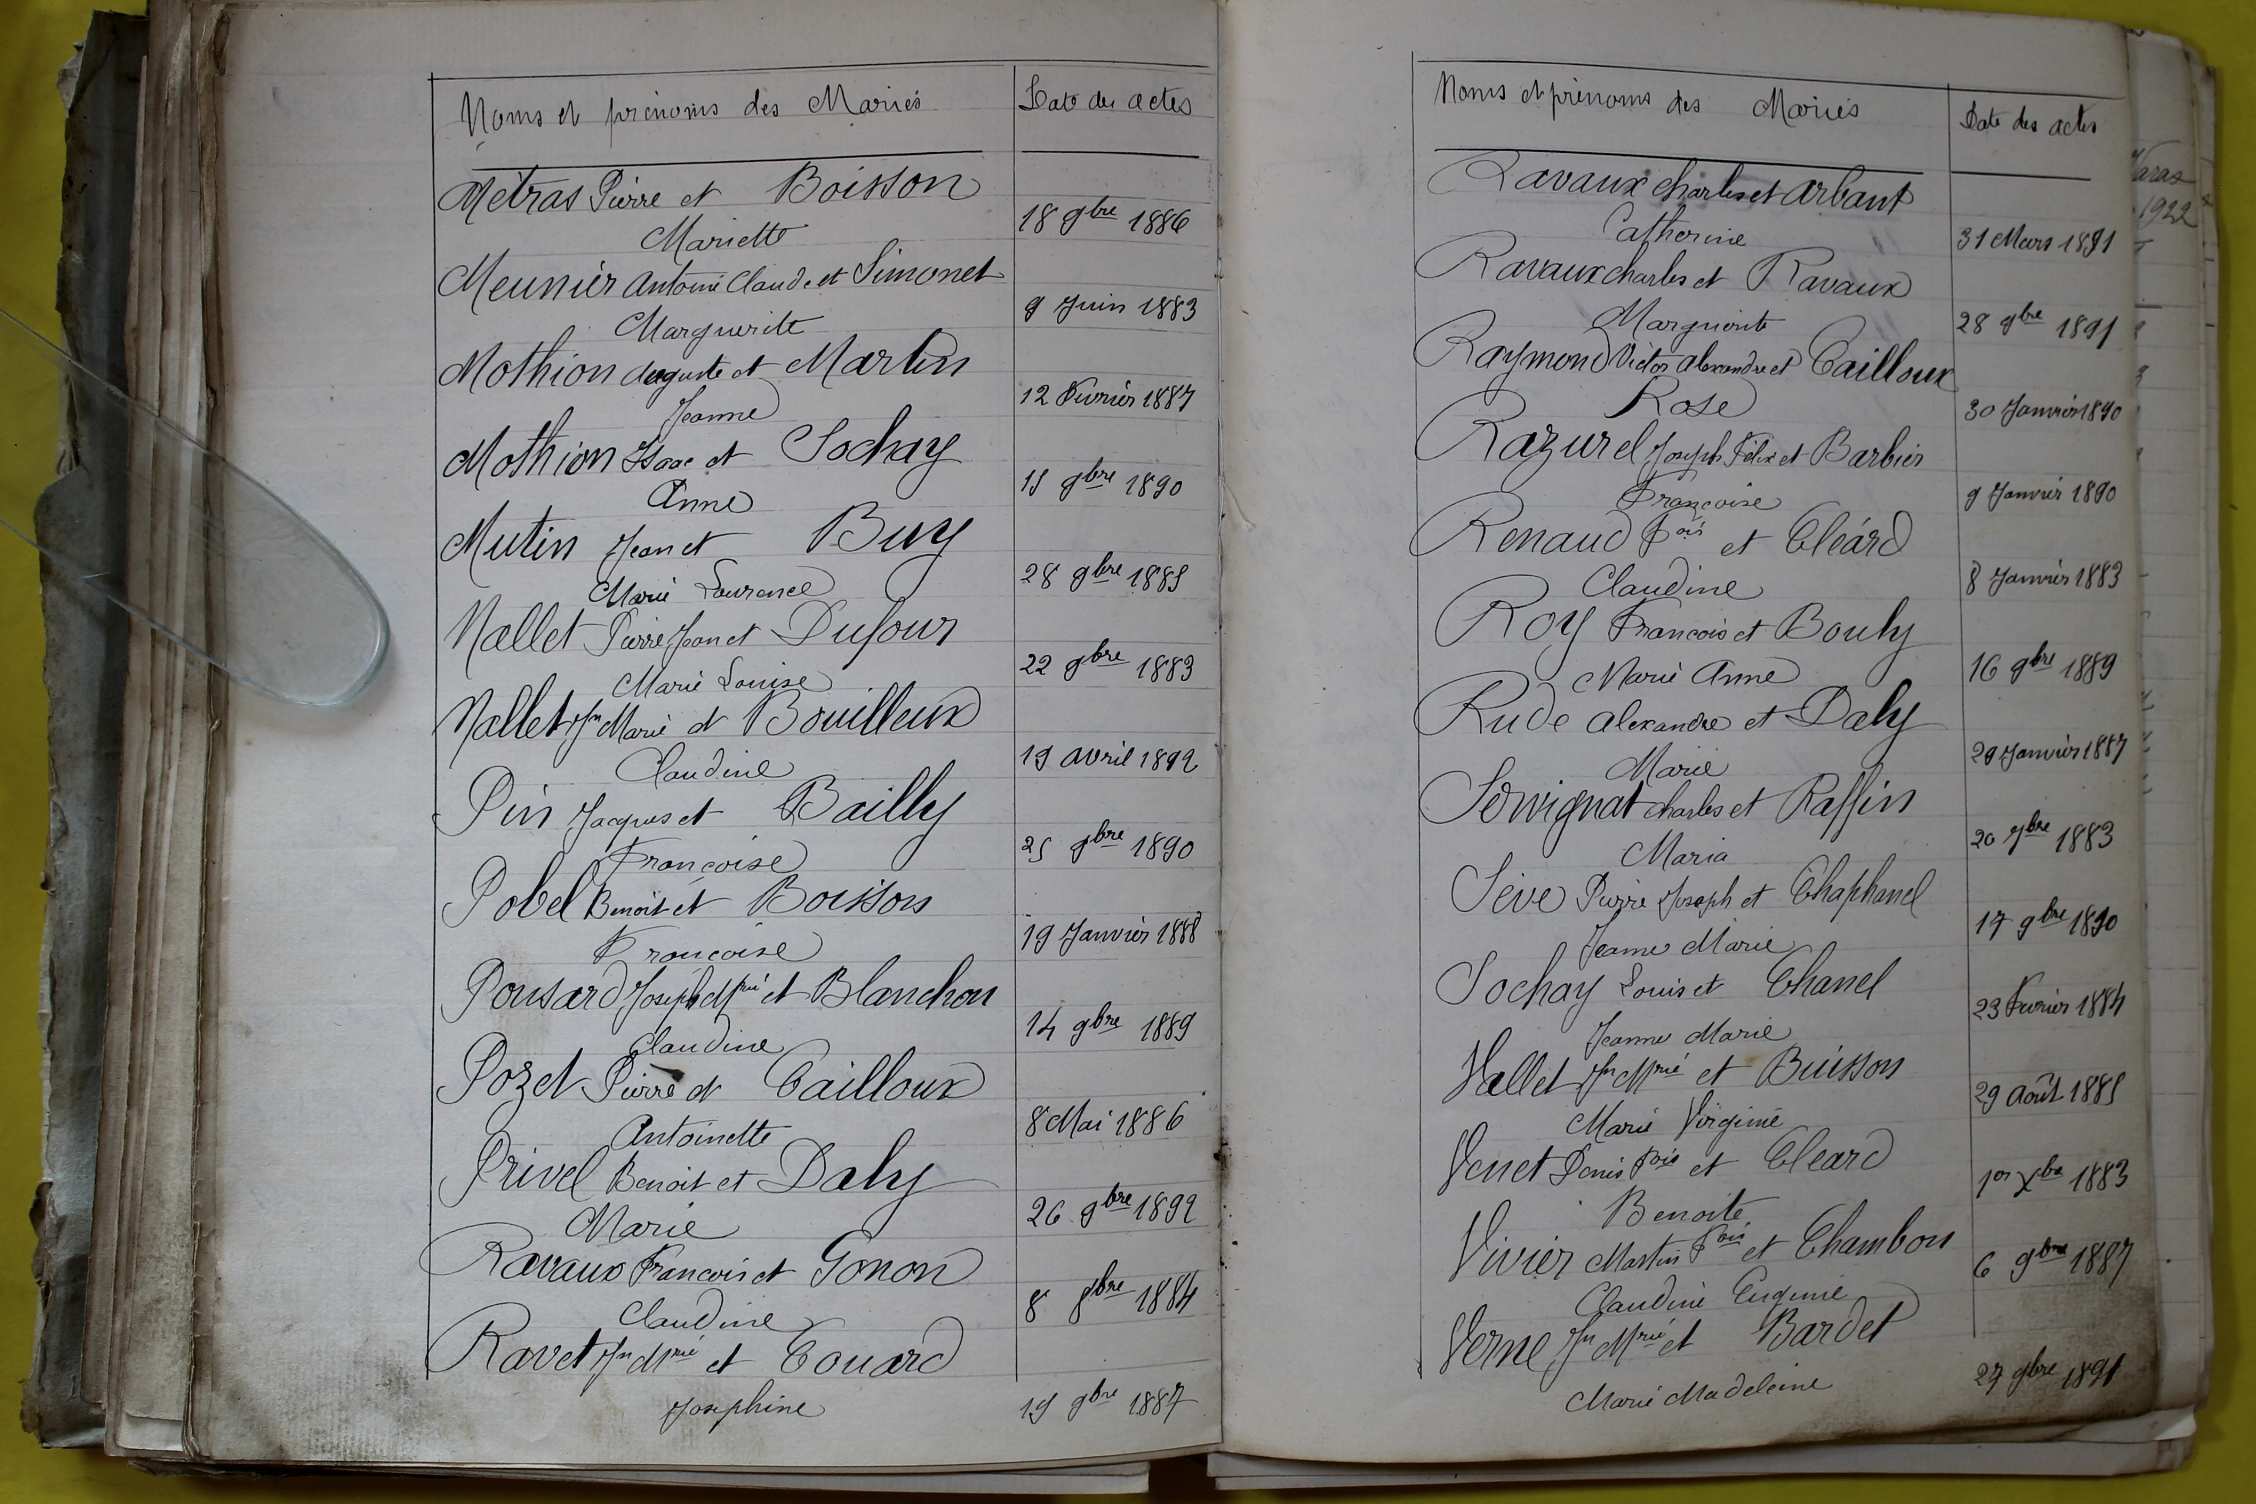 Noms et prénoms des Mariés
Date des actes
Métras Pierre et Boisson
Mariette
18 9bre 1886
Meunier Antoine Claude et Simonet
Marguerite
9 Juin 1883
Mothion Auguste et Martin
Jeanne
12 Février 1887
Mothion Isaac et Sochay
Anne
15 9bre 1890
Mutin Jean et Buy
Marie Laurence
28 9bre 1885
Nallet Pierre Jean et Dufour
Marie Louise
22 9bre 1883
Nallet Jn Marie et Bouilleux
Claudine
19 avril 1892
Pin Jacques et Bailly
Françoise
25 9bre 1890
Pobel Benoit et Boisson
Françoise
19 Janvier 1888
Ponsard Joseph Mrie et Blanchon
Claudine
14 9bre 1889
Pozet Pierre et Cailloux
Antoinette
8 Mai 1886
Privel Benoit et Daly
Marie
26 9bre 1892
Ravaux François et Gonon
Claudine
8 8bre 1884
Ravet Jn Mrie et Couard
Josephine
19 9bre 1887
Noms et prénoms des Mariés
Date des actes
Ravaux Charles et Arbant
Catherine
31 Mars 1891
Ravaux Charles et Ravaux
Marguerite
28 9bre 1891
Raymond Victor Alexandre et Cailloux
Rose
30 Janvier 1890
Razurel Joseph Félix et Barbier
Françoise
9 Janvier 1890
Renaud Fois et Cléard
Claudine
8 Janvier 1883
Roy François et Bouly
Marie Anne
16 9bre 1889
Rude Alexandre et Daly
Marie
29 Janvier 1887
Servignat Charles et Raffin
Maria
20 7bre 1883
Sève Pierre Joseph et Chaphanel
Jeanne Marie
17 9bre 1890
Sochay Louis et Chanel
Jeanne Marie
23 Février 1884
Vallet Jn Mrie et Buisson
Marie Virginie
29 Août 1885
Venet Denis Fois et Cleard
Benoite
1er Xbre 1883
Vivier Martin Fois et Chambon
Claudine Eugénie
6 9bre 1887
Verne Jn Mrie et Bardet
Marie Madeleine
27 9bre 1891
1922